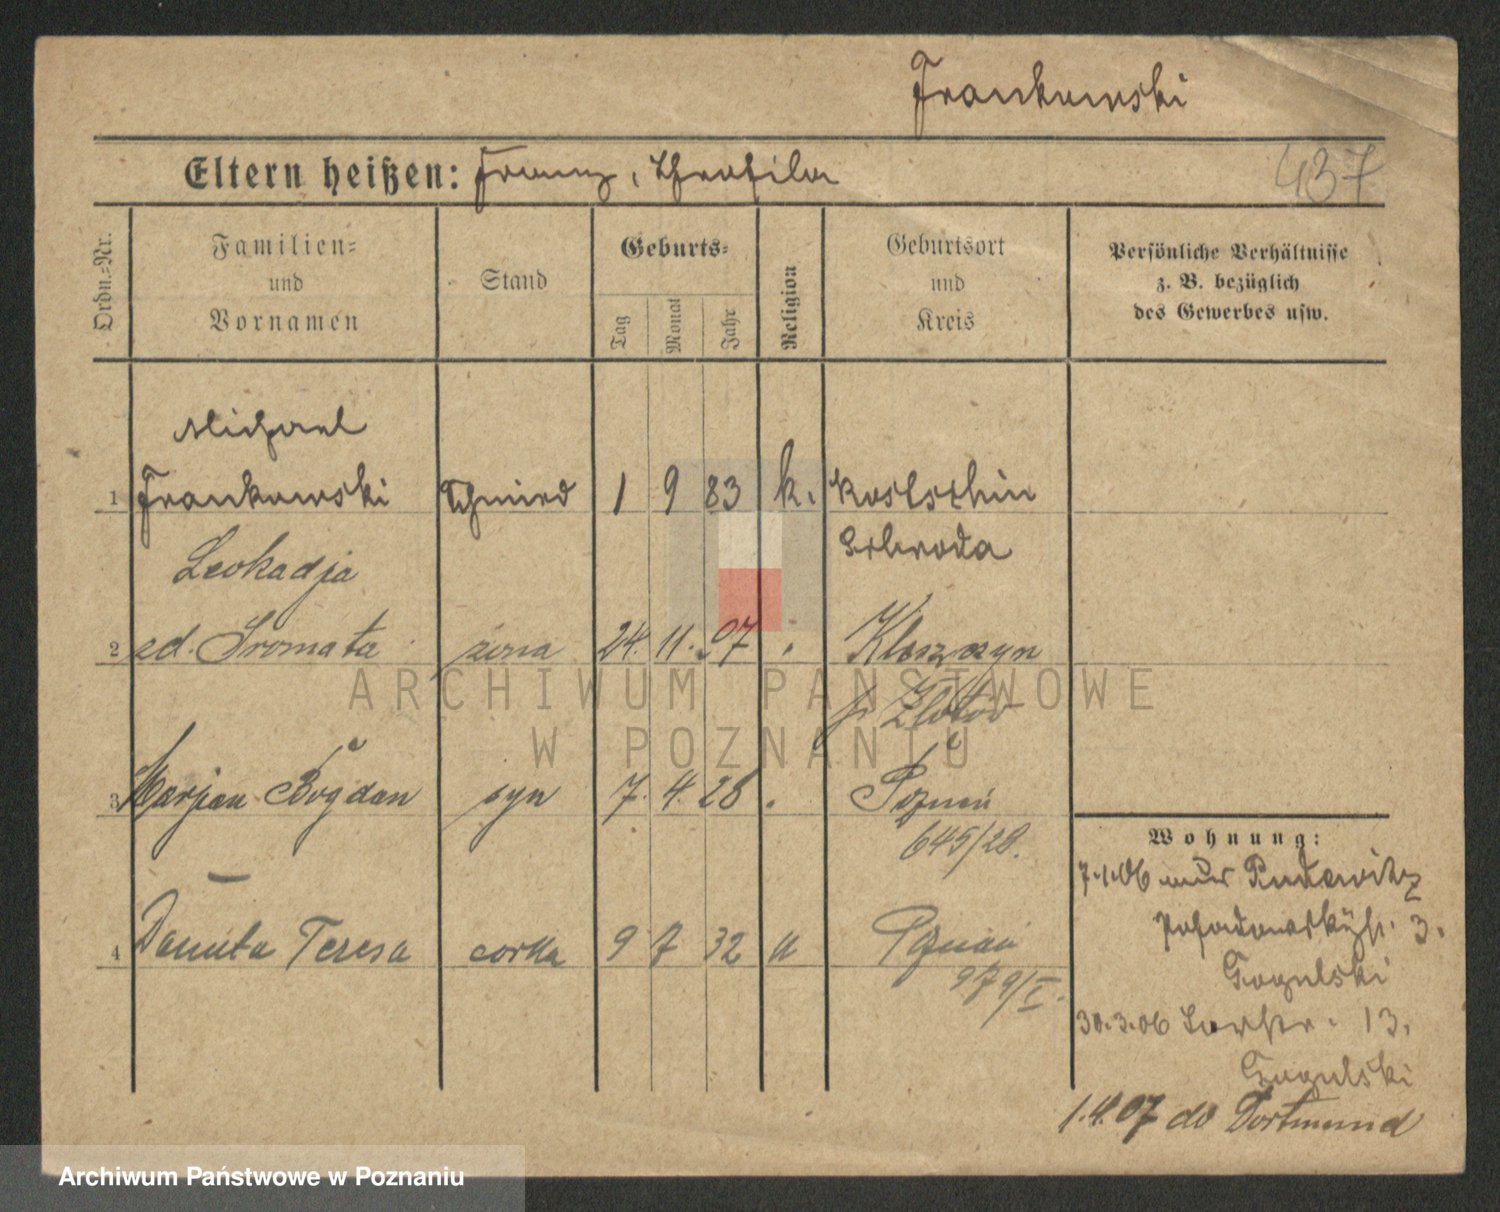 Frankowski
Eltern heißen: Franz, Theofila
437
Ordn.=Nr.
Familien=
und
Vornamen
Stand
Geburts=
Tag
Monat
Jahr
Religion
Geburtsort
und
Kreis
Persönliche Verhältnisse
z. B. bezüglich
des Gewerbes usw.
Michael
1 Frankowski Schmied 1 9 83 k. Kostschin
Schroda
Leokadja
2 zd. Sromata żona 24. 11. 97
Złotów
3 Marjan Bogdan syn 7. 4. 28 Poznań
645/28.
4 Danuta Teresa corka 9 7 32 Poznań
979/I.
Wohnung:
7.1.06 aus Pudewitz
3.
Gogulski
30.3.06 13.
Gogulski
1.4.07 do Dortmund
ARCHIWUM PAŃSTWOWE
W POZNANIU
Archiwum Państwowe w Poznaniu